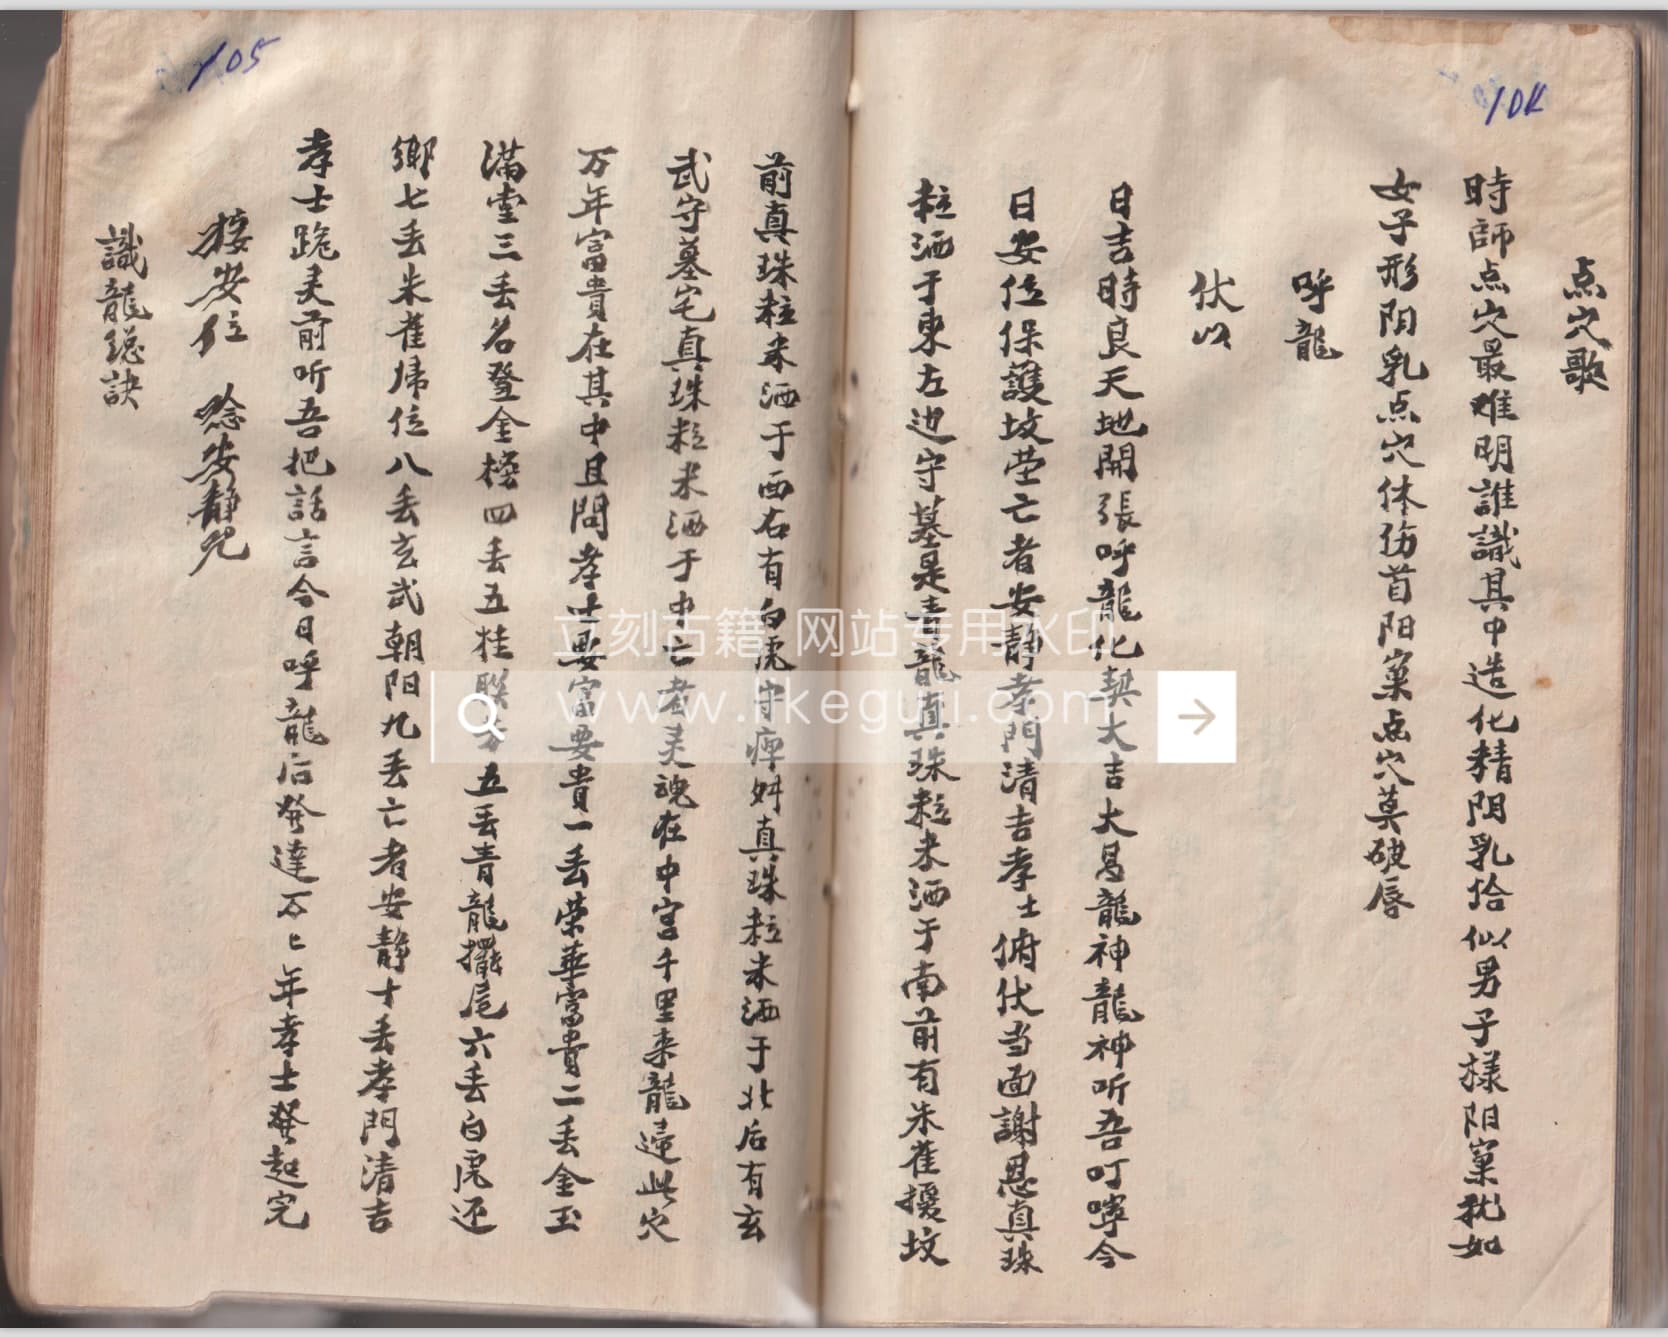 104
点穴歌
時師点穴最难明誰識其中造化精阴乳恰似男子様阳窠犹如
女子形阳乳点穴休伤首阳窠点穴莫破唇
呼龍
伏以
日吉時良天地開張呼龍化契大吉大昌龍神龍神听吾叮嚀今
日安位保護坟茔亡者安静孝門清吉孝士俯伏当面謝恩真珠
粒洒于東左边守墓是青龍真珠粒米洒于南前有朱雀擾坟
前真珠粒米洒于西右有白虎守 真珠粒米洒于北后有玄
武守墓宅真珠粒米洒于中亡者灵魂在中宫千里来龍归此穴
万年富貴在其中且問孝士要富要貴一丢荣華富貴二丢金玉
满堂三丢名登金榜四丢五桂联芳五丢青龍擺尾六丢白虎还
鄉七丢朱雀归位八丢玄武朝阳九丢亡者安静十丢孝門清吉
孝士跪灵前听吾把話言今日呼龍后發達万万年孝士發起完
接安位 念安静咒
識龍總訣
105
立刻古籍 网站专用水印
www.likeguji.com